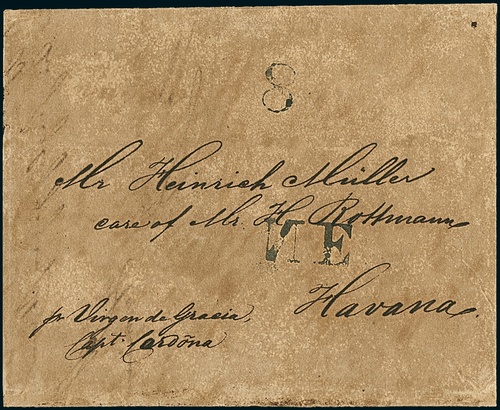 8
Mr Heinrich Müller
care of Mr. H Rottmann
NE
Havana.
pr Virgen de Gracia
Capt. Cardõna